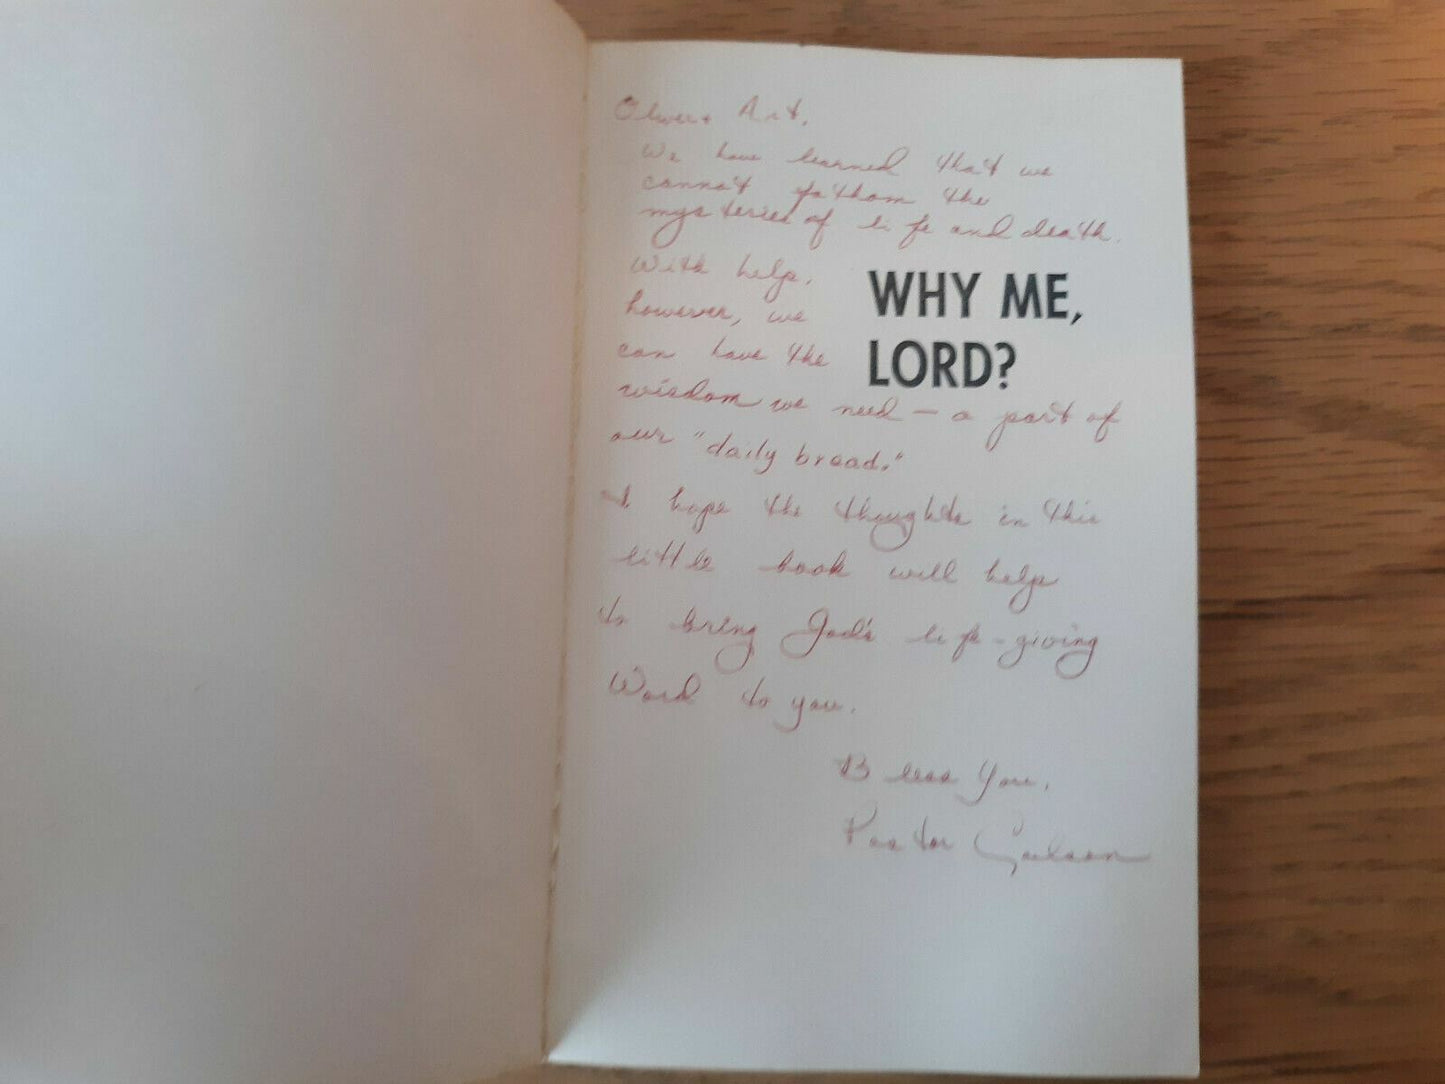 Art,
We have learned that we
cannot fathom the
mysteries of life and death.
With help,
however, we
can have the
WHY ME,
LORD?
wisdom we need — a part of
our "daily bread."
I hope the thoughts in this
little book will help
to bring God's life-giving
Word to you.
Bless You,
Pastor